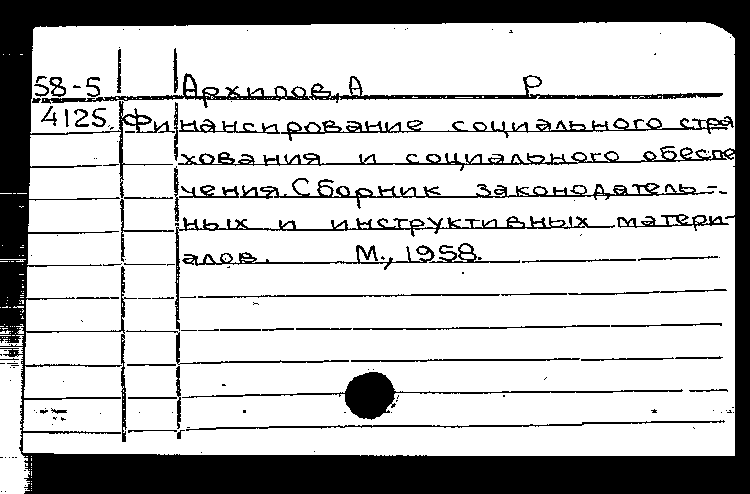 58-5 Архипов, А Р
4125. Финансирование социального стра
хования и социального обеспе
чения. Сборник законодатель-
ных и инструктивных матери-
алов. М., 1958.